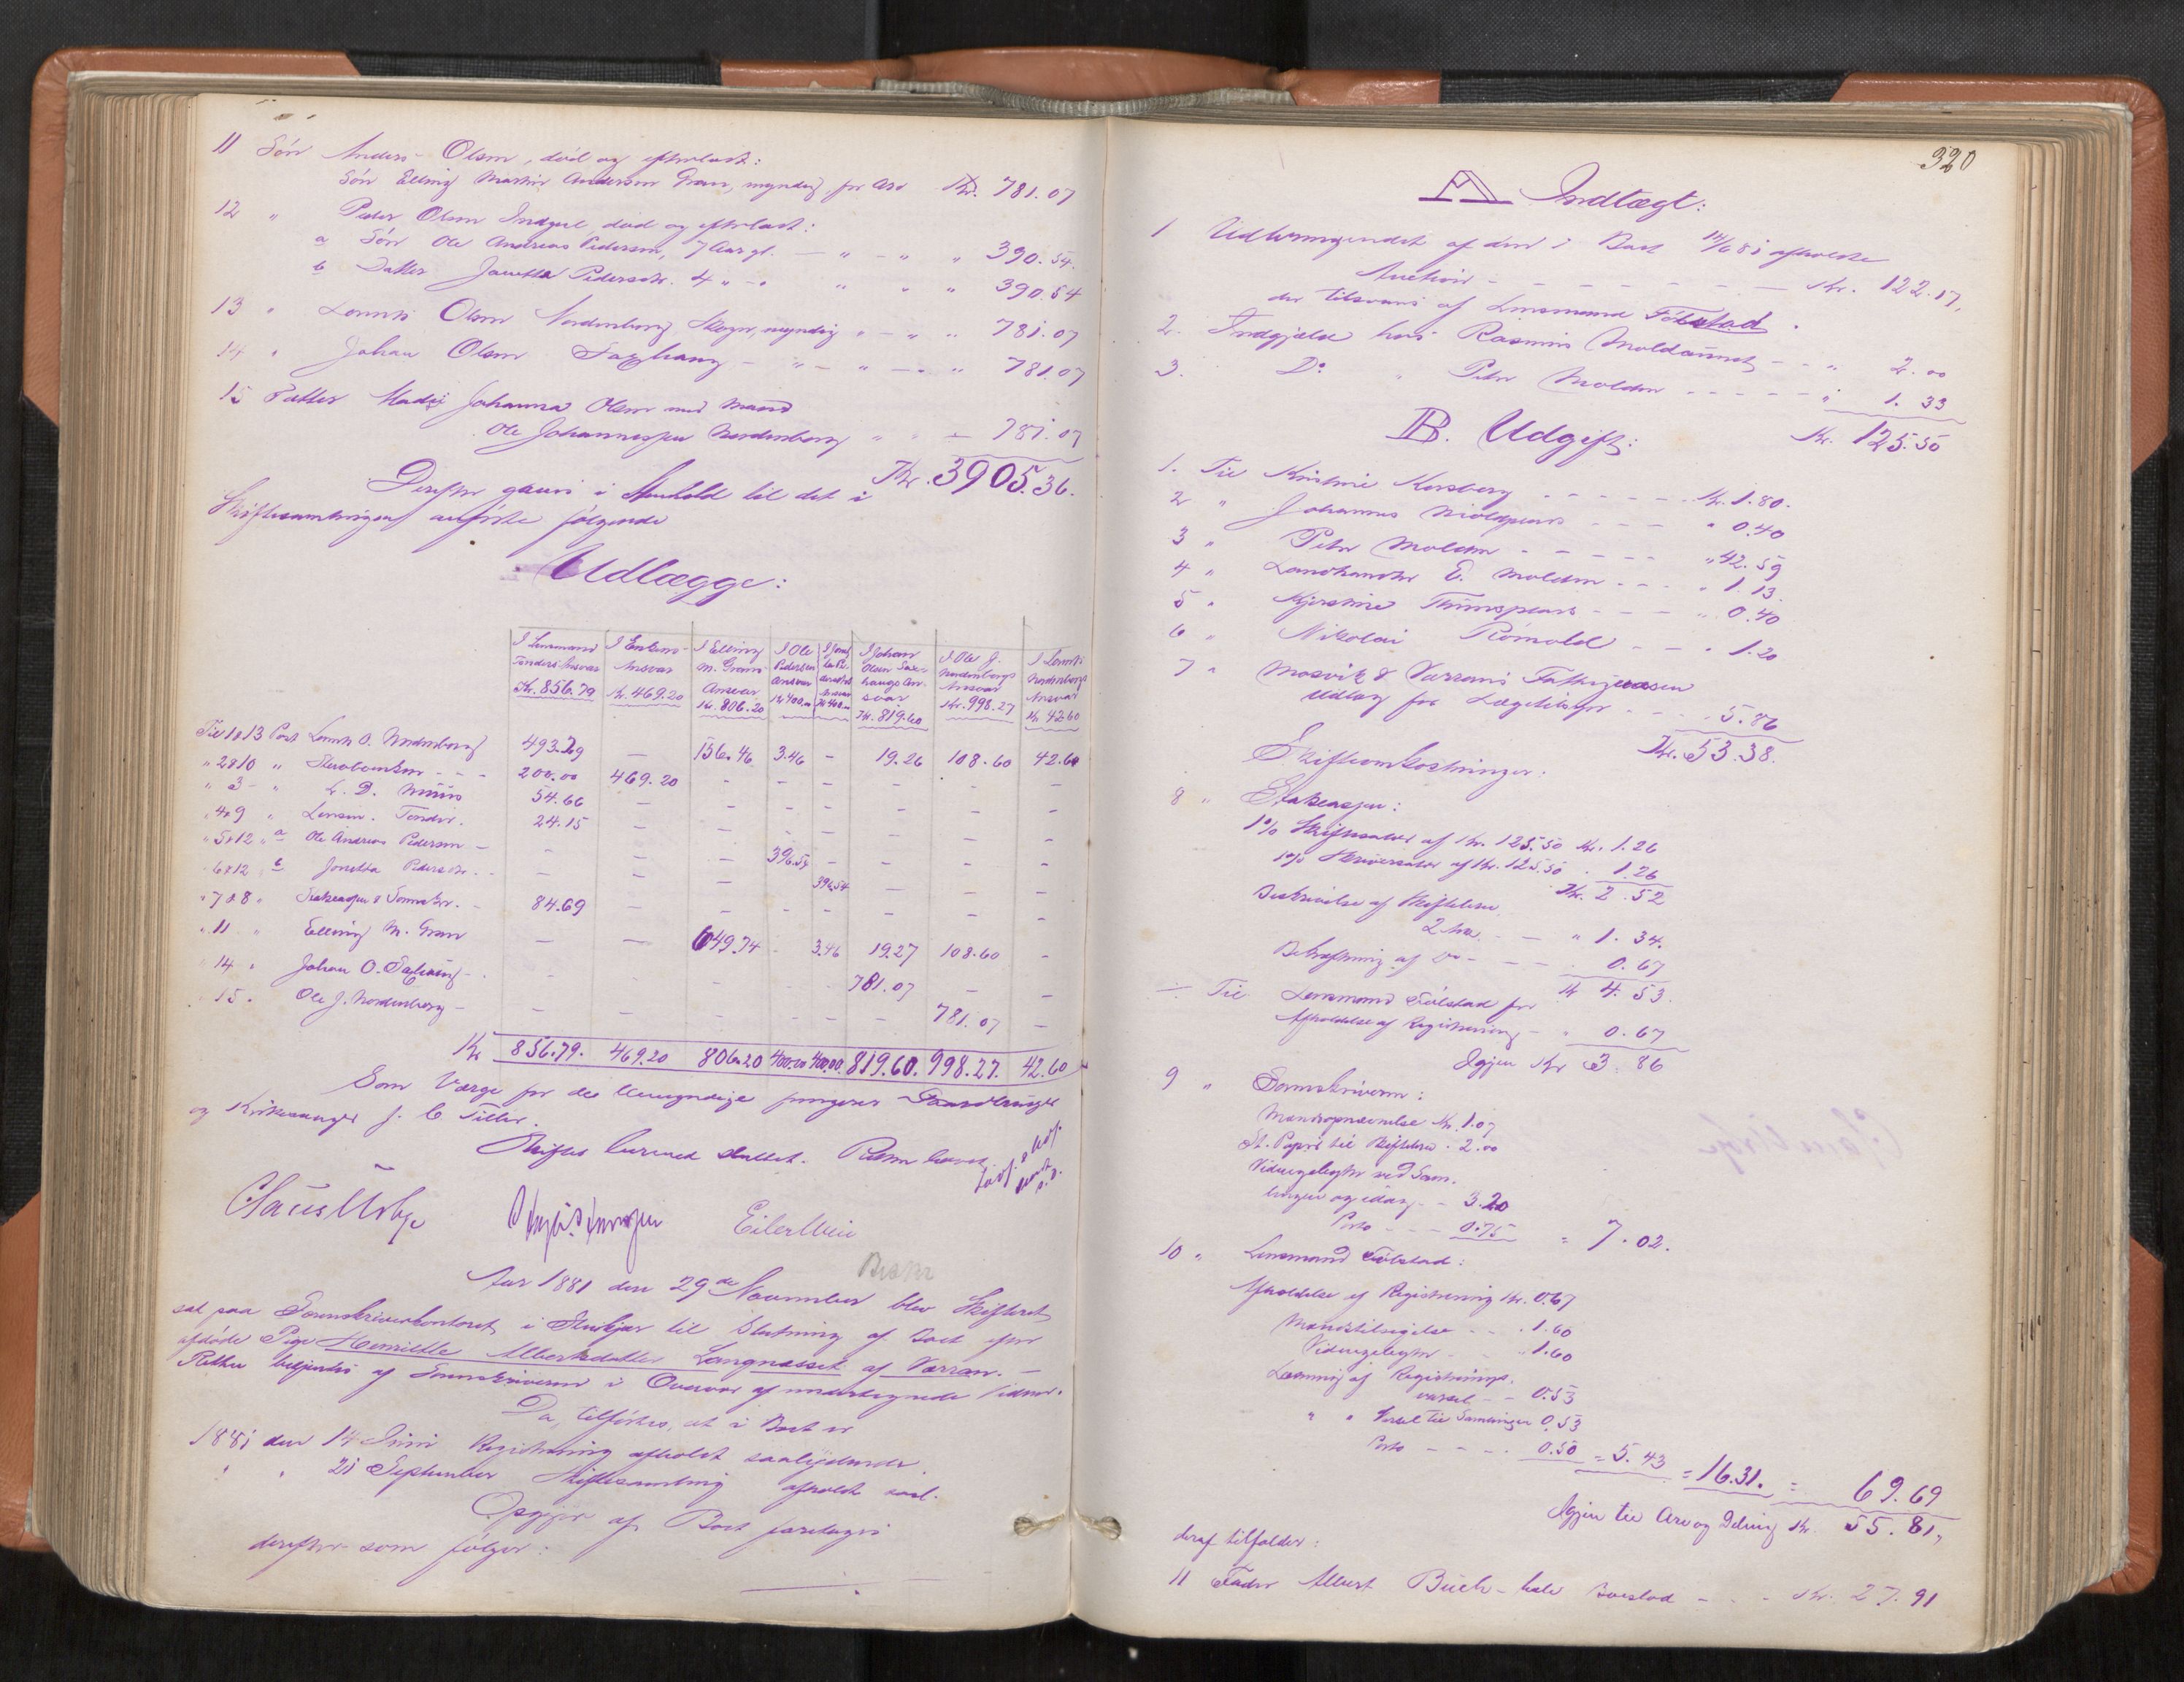 11 Søn Anders Olsen, død og efterladt:
Søn Elling Martin Andersen Gran, myndig, for Arv Kr. 781.07
12 " Peder Olsen død og efterladt:
a Søn Ole Andreas Pedersen, 7 Aar gl. — " — " " 390.54.
b Datter Jonetta Pedersdr. 4 " — " " " " 390.54
13 " Lorents Olsen Nordenborg Skogn, myndig " — " " 781.07
14 " Johan Olsen Saxhaug — " — " — " " 781.07
15 Datter Johanna Olsen med Mand
Ole Johannessen Nordenborg " " — 781.07
Kr. 3905.36.
Derefter gaves i Henhold til det i
Skiftesamlingen anførte følgende
Udlægge:
I Lensmand Tenders Ansvar Kr. 856.79
I Ansvar Kr. 469.20
I Elling M. Grans Ansvar Kr. 806.20
I Ole Pedersen Ansvar Kr 400.00
Ansvar Kr 400.00
I Johan Olsen Saxhaugs Ansvar Kr. 819.60
I Ole J. Nordenborgs Ansvar Kr. 998.27
I Lorents Nordenborgs Ansvar Kr 42.60
Til 1 & 13 Post Lorents O. Nordenborg 493.29 — 156.46 3.46 — 19.26 108.60 42.60
" 2 & 10 " — — — 200.00 469.20 — — — — — —
" 3 — " L. D. 54.66 — — — — — — —
" 4 & 9 " Lensm. Tender. 24.15 — — — — — — —
" 5 & 12 " a Ole Andreas Pedersen — — — — 396.54 — — — —
" 6 & 12 b Jonetta Pedersdr. — — — — — 396.54 — — —
" 7 & 8 " Statkassen & Sorenskr. — 84.69 — — — — — — —
" 11 " Elling M. Gran — — 649.74 — 3.46 19.27 108.60 —
" 14 " Johan O. Saxhaug — — — — — 781.07 — —
" 15 " Ole J. Nordenborg — — — — — — — 781.07 —
Kr 856.79. 469.20 806.20 400.00 400.00. 819.60. 998.27. 42.60
Som Værge for de Umyndige fungerer
og Kirkesanger J. C. Tiller.
Skiftet hermed sluttet. Retten hævet.
Claus Urbye
Eiler Mein
Beskr
Aar 1881 den 29de November blev Skifteret
sat paa Sorenskriverkontoret i Stenkjær til Slutning af Boet efter
afdøde Pige Henriette Albertsdatter Langnasset af Værran. —
Retten betjentes af Sorenskriveren i Overvær af undertegnede Vidner.
Da tilførtes, at i Boet er
1881 den 14 Juni Registrering afholdt saalydende
" " 21 September Skiftesamling afholdt saal.
Opgjør af Boet foretages
derefter som følger:
320
A Indtægt:
1 Udbringendet af den i Boet 14/6 81 afholdte
Auktion — — — — — — — Kr. 122.17,
der tilsvares af Lensmand Følstad.
2. Indgjæld hos Rasmus Moldaunet — — " 2.00
3. Do " Peter Molden — — — — — " 1.33
Kr. 125.50
B. Udgift:
1. Til Kristine Korsberg — — — — — Kr. 1.80.
2 " Johannes — — — " 0.40
3 " Peter Molden — — — — — " 42.59
4 " Landhandler E. Molden — — — " 1.13.
5 " Kjerstine — — — " 0.40
6 " Nikolai Römold — — " 1.20
7 " Mosvik & Værrans Fattigvæsen
Udlæg for Lægetilsyn — — " 5.86
Kr. 53.38.
Skifteomkostninger:
8 " Statkassen:
1% Skiftesalær af Kr. 125.50 Kr. 1.26
1% Skriversalær af Kr. 125.50 " 1.26
Kr. 2.52
Beskrivelse af Skiftebrev
2 — — " 1.34.
Bekræftning af Do — — — 0.67
Kr 4.53.
÷ Til Lensmand Følstad for
Afholdelse af Registrering — " 0.67
Igjen Kr 3.86
9 " Sorenskriveren:
Mandsopnævnelse Kr. 1.07
St. Papir til Skiftebrev " 2.00
Vidnepenger ved Sam-
lingen og idag — 3.20
Porto — — — 0.75 = 7.02.
10 " Lensmand Følstad:
Afholdelse af Registrering Kr. 0.67
Mandstilsigelse — — " 1.60
— " 1.60
Lavning af Registrerings-
varsel — — 0.53
" " Varsel til Samlingen 0.53
Porto — — — 0.50 = 5.43 = 16.31. = 69.69
Igjen til Arv og Deling Kr. 55.81,
deraf tilfalder:
11 Fader Albert Buch — hele Boeslod — — — Kr. 27.91